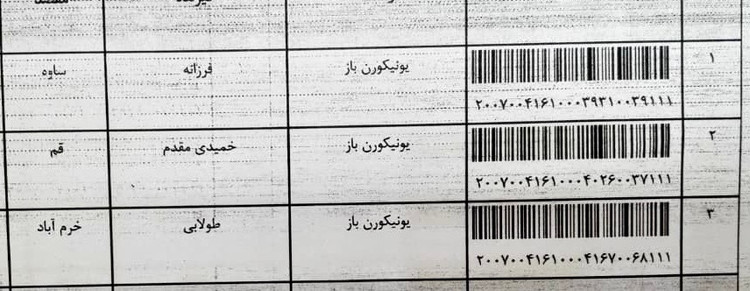 ۱ ۲۰۰۷۰۰۴۱۶۱۰۰۰۳۹۳۱۰۰۳۹۱۱۱ یونیکورن باز فرزانه ساوه
۲ ۲۰۰۷۰۰۴۱۶۱۰۰۰۴۰۲۶۰۰۳۷۱۱۱ یونیکورن باز خمیدی مقدم قم
۳ ۲۰۰۷۰۰۴۱۶۱۰۰۰۴۱۶۷۰۰۶۸۱۱۱ یونیکورن باز طولابی خرم آباد